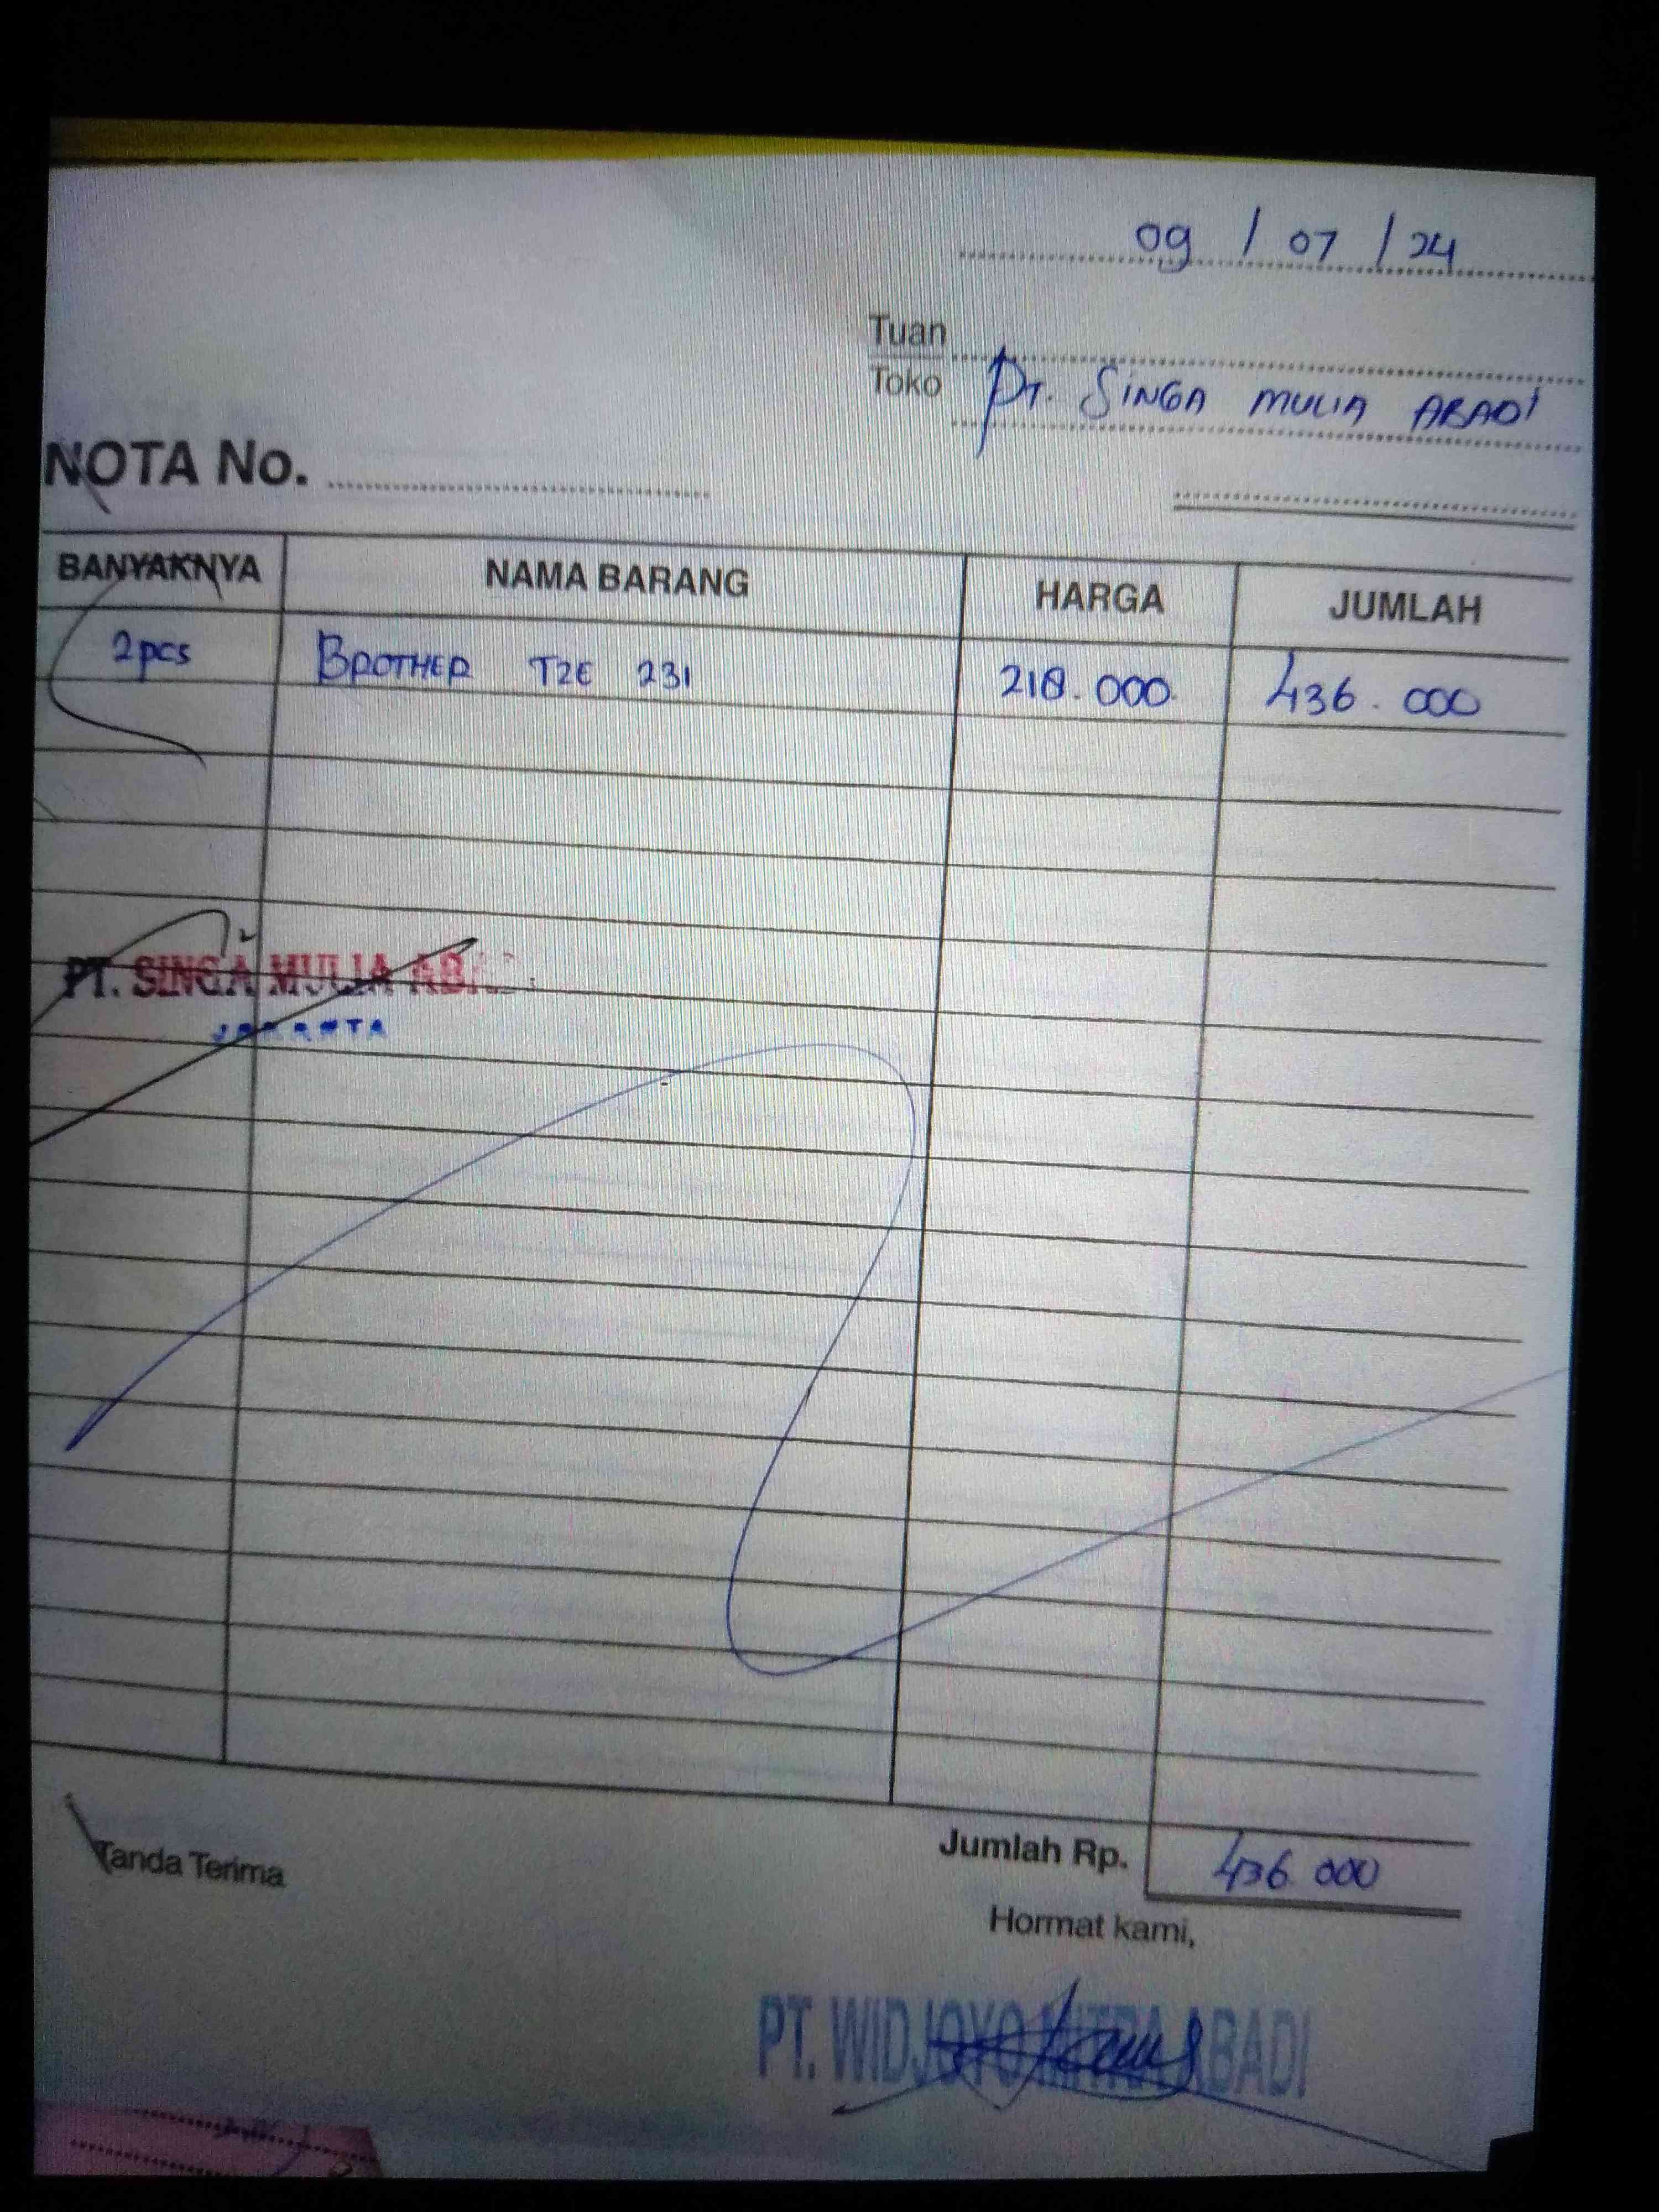 09 / 07 / 24
Tuan
Toko PT. SINGA MULIA ABADI
NOTA No.
BANYAKNYA NAMA BARANG HARGA JUMLAH
2pcs BROTHER TZE 231 218.000 436.000
PT. SINGA MULIA
JAKARTA
Jumlah Rp. 436 000
Tanda Terima
Hormat kami,
PT. WIDJOYO MITRA ABADI